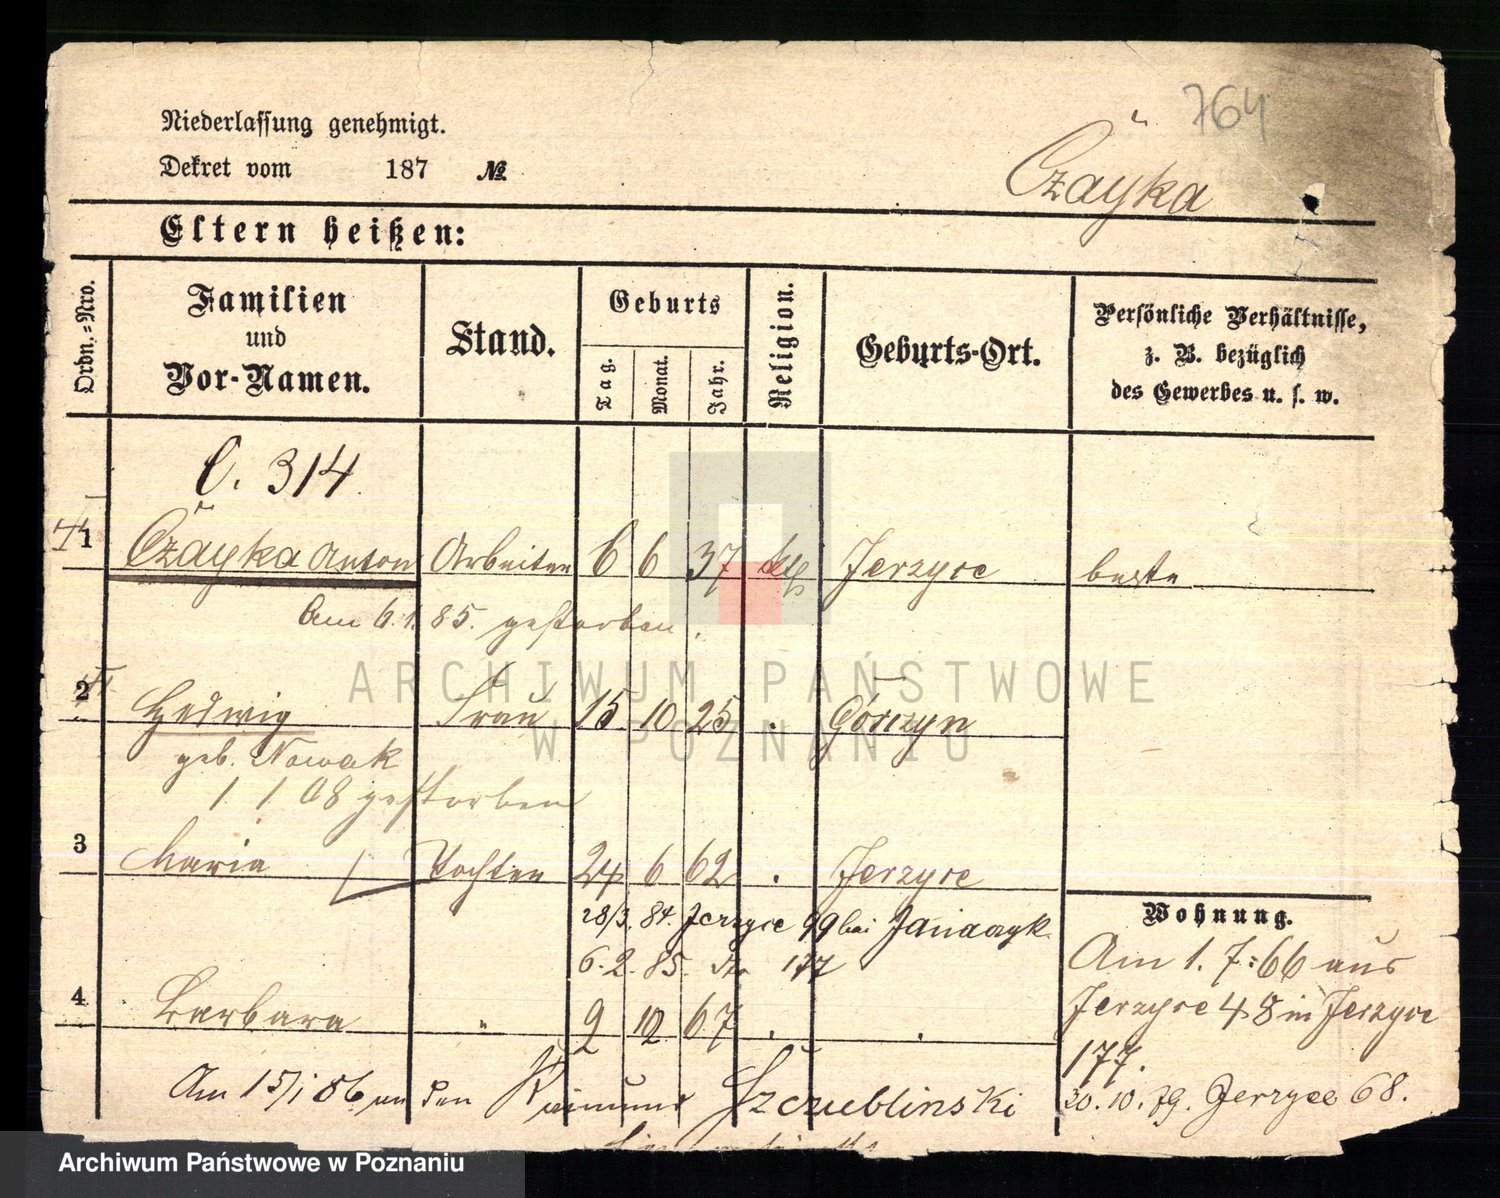 764
Niederlassung genehmigt.
Dekret vom 187 №
Czayka
Eltern heißen:
Ordn.=Nro.
Familien und Vor-Namen.
Stand.
Geburts
Tag.
Monat.
Jahr.
Religion.
Geburts-Ort.
Persönliche Verhältnisse,
z. B. bezüglich
des Gewerbes u. s. w.
C. 314.
1 Czayka Anton Arbeiter 6 6 37 kth Jerzyce
Am 6.1.85. gestorben.
2 Hedwig Frau 15. 10 25 Górczyn
geb. Nowak
1. 1. 08 gestorben
3 Maria Tochter 24 6 62 Jerzyce
28/3. 84. Jerzyce 99 bei
6. 2. 85. 177
Wohnung.
Am 1. 7. 66 aus
Jerzyce 48 in Jerzyce
177.
20. 10. 79. Jerzyce 68.
4 Barbara " 2 12 67
Am 15/1 86 an den Szczublinski
ARCHIWUM PAŃSTWOWE
W POZNANIU
Archiwum Państwowe w Poznaniu